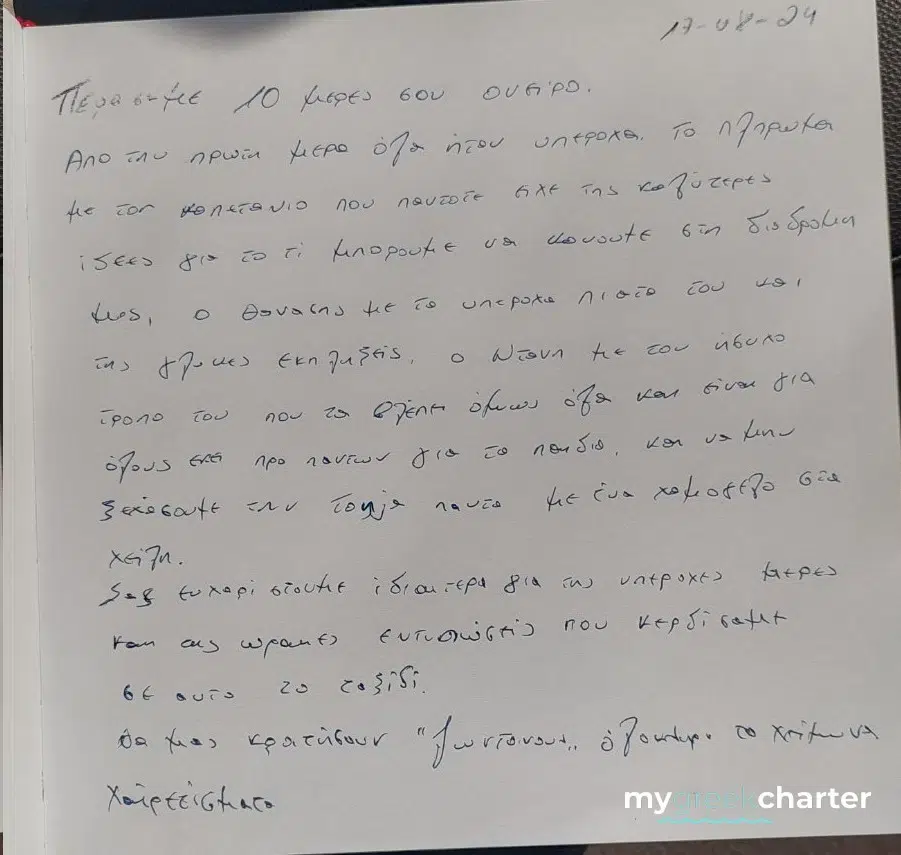 17-08-24
Περασαμε 10 μερες σου ονειρο.
Απο την πρωτη μερα όλα ήταν υπεροχα. Το πληρωμα
με τον καπετανιο που παντοτε ειχε της καλύτερες
ιδεες για το τι μπορουμε να κανουμε στη διαδρομη
μας, ο Θανασης με τα υπεροχα πιατα του και
της γλυκες εκπληξεις, ο Ντανη με τον ήσυχο
τροπο του που τα βλεπει όμως όλα και ειναι για
όλους εκει προ παντων για τα παιδια, και να μην
ξεχάσουμε την παντα με ένα χαμογελο στα
χειλη.
Σας ευχαριστουμε ιδιαιτερα για της υπεροχες μερες
και της ωραιες εντυπώσεις που κερδισαμε
σε αυτο το ταξιδι.
Θα μας κρατήσουν "ζωντανους" όλοκληρο το χειμωνα
Χαιρετεισματα
mygreekcharter